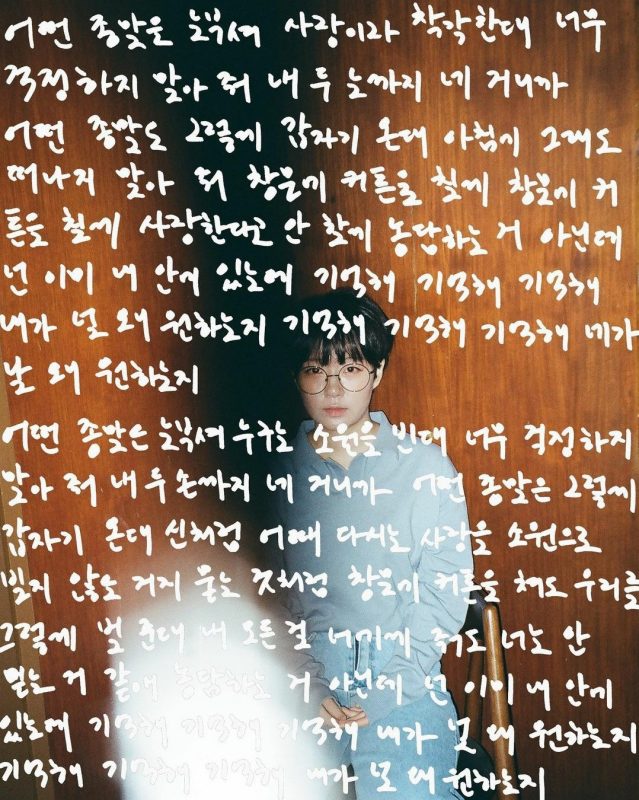 어떤 종말은 눈부셔 사랑이라 착각한대 너무
걱정하지 말아 줘 내 두 눈까지 네 거니까
어떤 종말도 그렇게 갑자기 온대 아침이 그래도
떠나지 말아 줘 창문에 커튼을 칠게 창문에 커
튼을 칠게 사랑한다고 안 할게 농담하는 거 아닌데
넌 이미 내 안에 있는데 기억해 기억해 기억해
내가 널 왜 원하는지 기억해 기억해 기억해 네가
날 왜 원하는지
어떤 종말은 눈부셔 누구는 소원을 빈대 너무 걱정하지
말아 줘 내 두 손까지 네 거니까 어떤 종말은 그렇게
갑자기 온대 신처럼 어때 다시는 사랑을 소원으로
빌지 않는 거지 웃는 것처럼 창문에 커튼을 쳐도 우리를
그렇게 벌 준대 내 모든 걸 너에게 줘도 너는 안
믿는 거 같애 농담하는 거 아닌데 넌 이미 내 안에
있는데 기억해 기억해 기억해 내가 널 왜 원하는지
기억해 기억해 기억해 내가 널 왜 원하는지